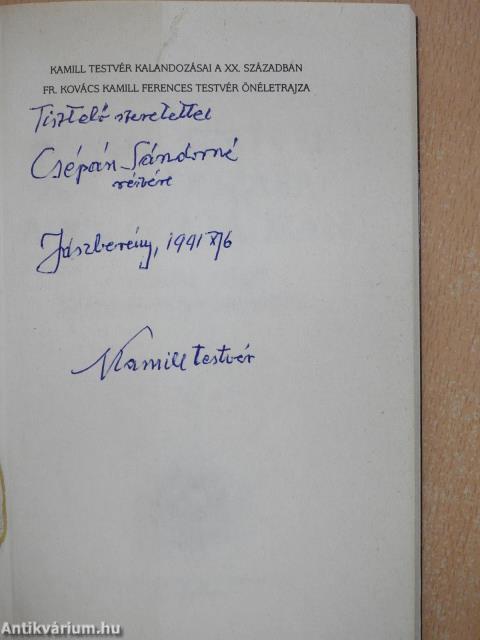 KAMILL TESTVÉR KALANDOZÁSAI A XX. SZÁZADBAN
FR. KOVÁCS KAMILL FERENCES TESTVÉR ÖNÉLETRAJZA
Tisztelő szeretettel
Csépán Sándorné
részére
Jászberény, 1991
Kamill testvér
Antikvárium.hu